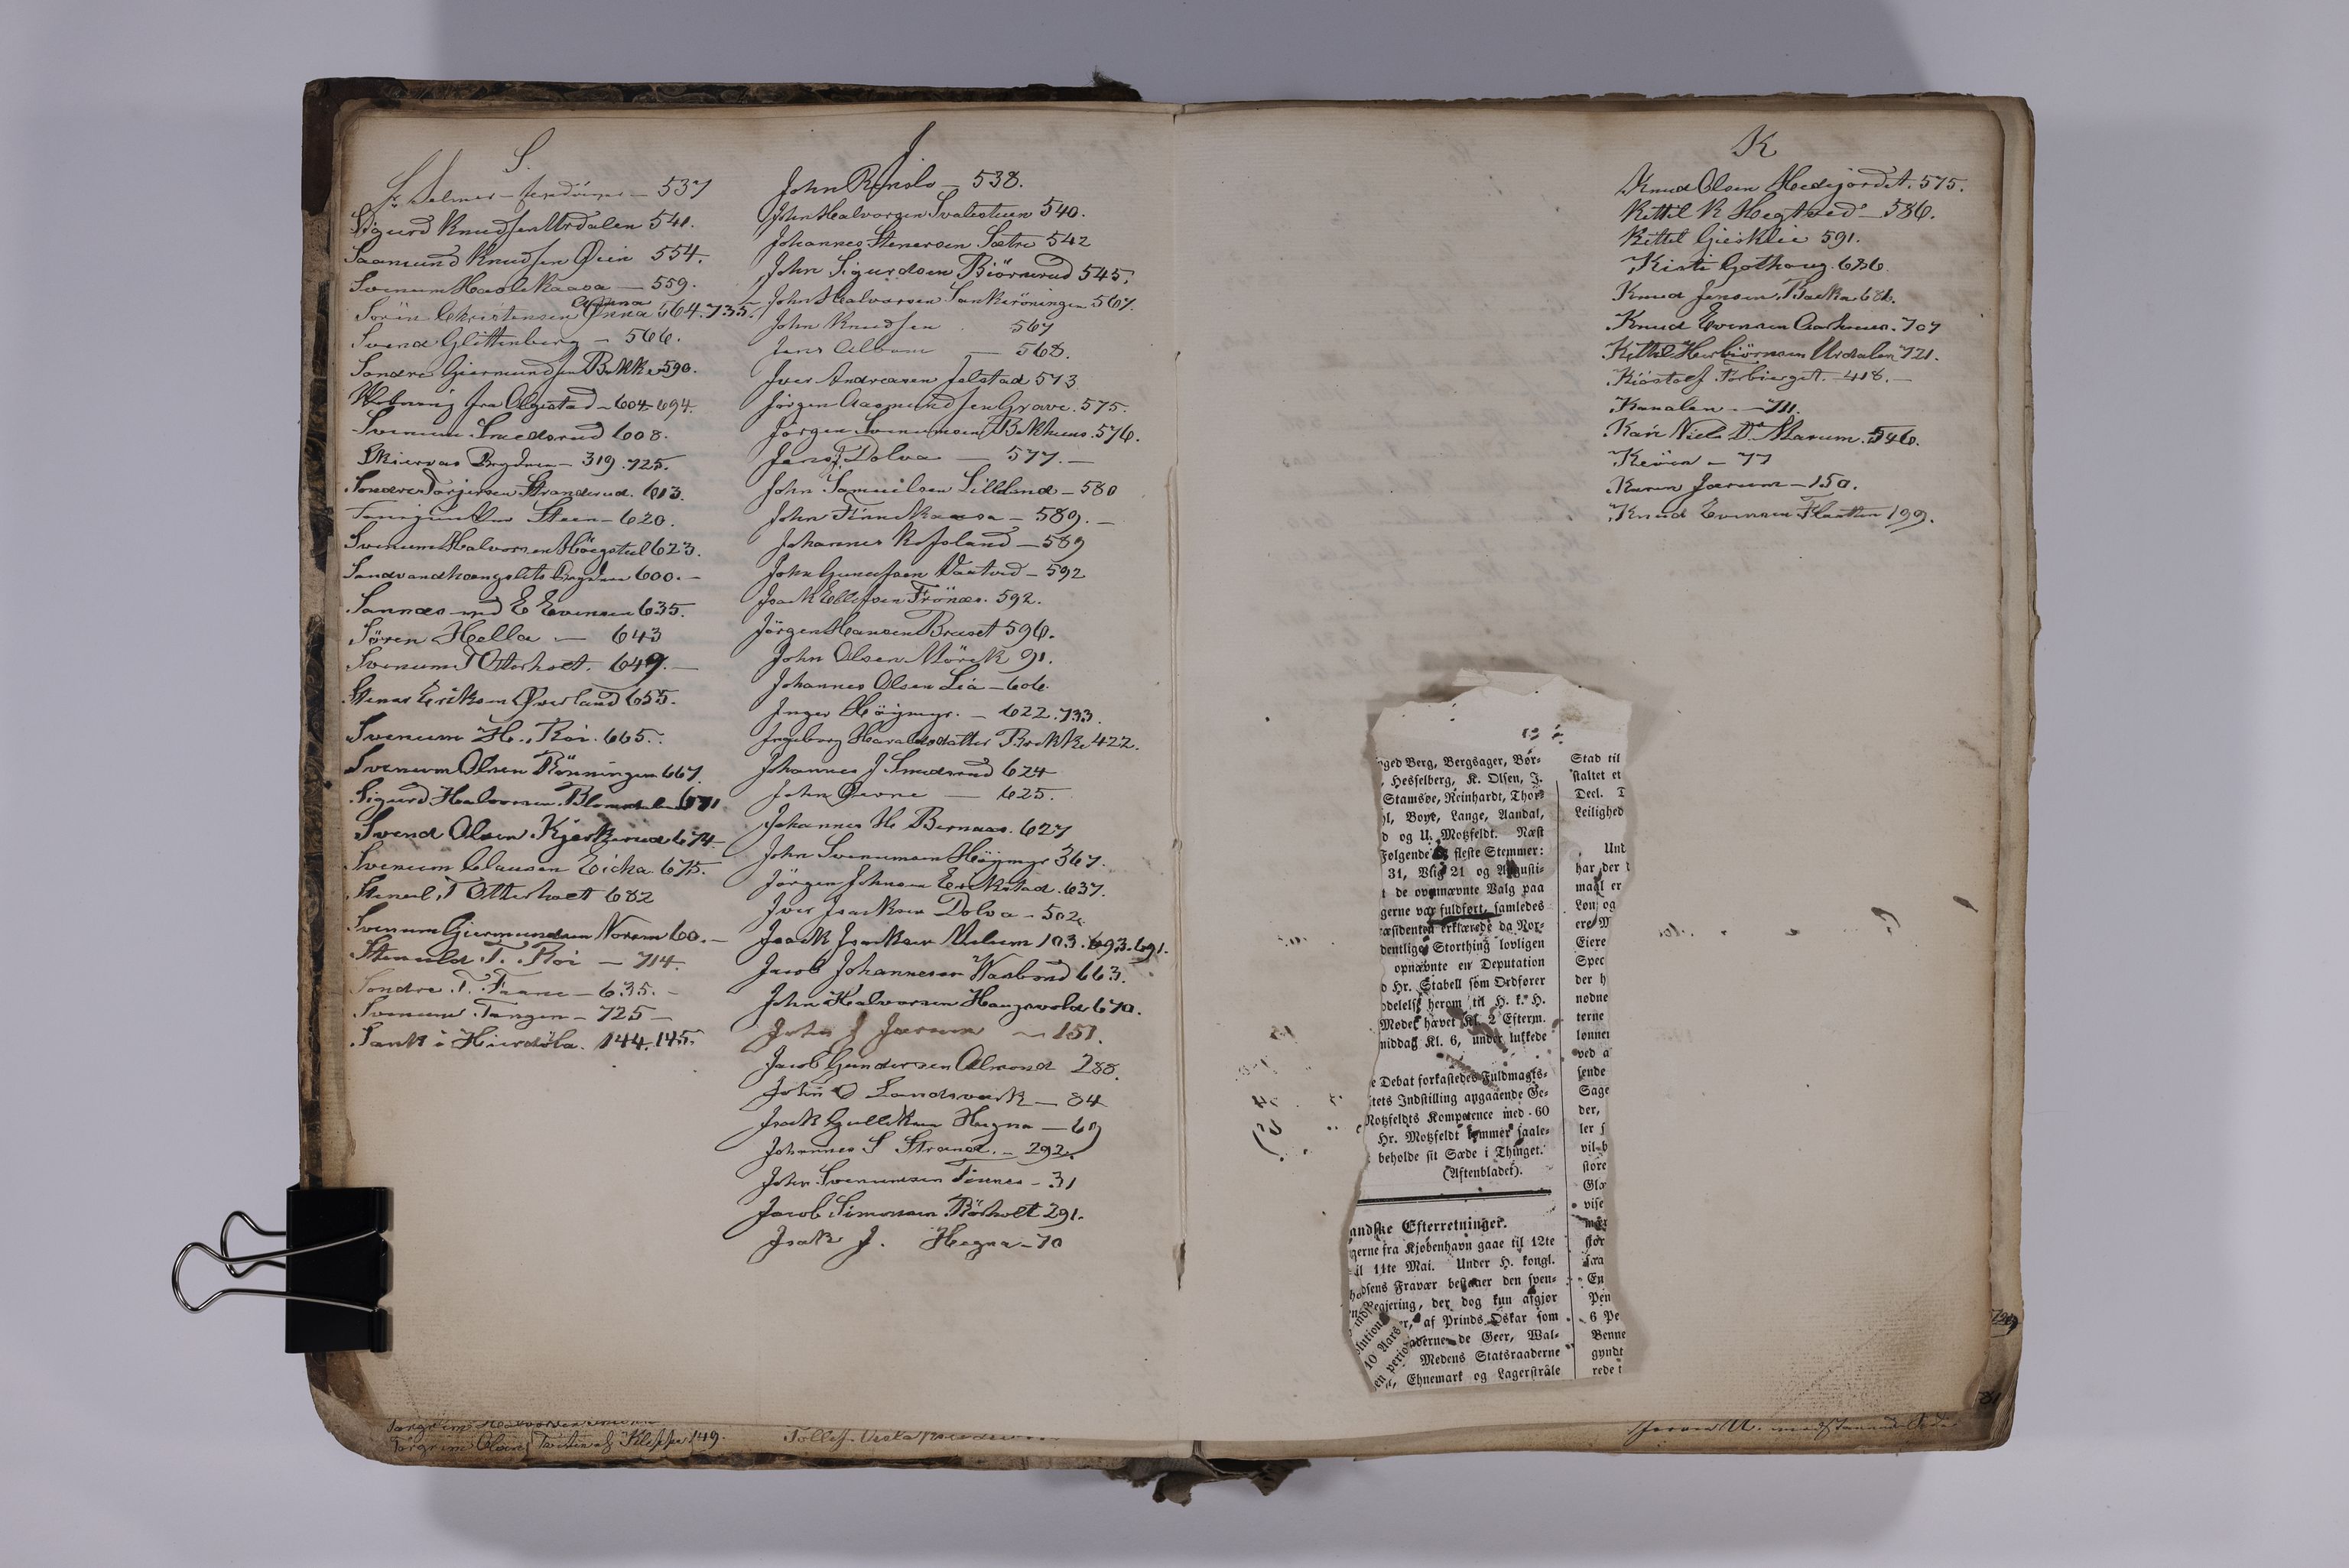 S.
537
Sigurd Knudsen Urdalen 541.
Saamund Knudsen Öien 554.
Svenum Haslekaasa — 559.
Anna
Sörin Christensen Önna 564. 735.
Svend Glittenberg — 566.
Sondre Giermundsen Bekke 590.
fra Algestad — 604 694.
Svenum Smedsrud 608.
Skiervas Brydnin — 319. 725.
Sondre Torjersen Stranderud. 613.
Steen — 620.
Svenum Halvorsen Höegstul 623.
600. —
Sannæs med E Evensen 635.
Sören Hella — 643
Svenum T Otterholt. 649. —
Stener Eriksen Øverland 655.
Svenum H. Roi. 665.
Svenum Olsen Rönningen 667.
Sigurd Halvorsen Blomdalen 671
Svend Olsen Kjerkerud 674.
Svenum Clausen Eicka 675.
Stenul T Otterholt 682
Svenum Giermundsen Norem 60. —
Stenuld T. Roi — 714.
Sondre T. Frane — 635. —
Svenum Tangen — 725 —
Sank i Hierdöla. 144. 145.
J
John Rinslo — 538.
John Halvorsen Svalestuen 540.
Johannes Stenersen Sætre 542
John Sigurdsen Biörnerud 545.
John Halvorsen Sankeröningen 567.
John Knudsen 567
Jens Album — 568.
Iver Andreasen Jelstad 573
Jörgen Aasmundsen Grave. 575.
Jörgen Svenumsen Bekhuus. 576.
Jens J. Dolva — 577. —
John Samuelsen Lillelund — 580
John Finnekaasa — 589. —
Johannes Rofsland — 589
John Gunulfsen Vastved — 592
Isack Ellefsen Frönæs. 592.
Jörgen Hansen Bruset 596.
John Olsen Mörck 91.
Johannes Olsen Lia — 606.
Inger Höymyr. — 622. 733.
Ingeborg Haraldsdatter Brekke 422.
Johannes J. Smedsrud 624
John Qvone — 625.
Johannes H. Bernaas. 627
John Svenumsen Höymyr 367.
Jörgen Johnsen Erikstad. 637.
Iver Isacksen Dolva — 502.
Isack Isacksen Melum 103. 693. 691.
Jacob Johannesen Waabond 663.
John Halvorsen Haugsvold 670.
John J Jærum — 151.
Jacob Gundersen Almond 288.
John O Landsverk — 84
Isack Gulliksen Hegna — 69
Johannes S Strand. — 292.
John Svenumsen Tinnes — 31
Jacob Simonsen Börholt 291.
Isak J. Hegna — 70
K
Knud Olsen Hedejordet. 575.
Kittil K Hegtved — 586.
Kittil Gieslie 591.
Kisti Gothoug. 626.
Knud Jensen Backa 681.
Knud Evensen Aarhuus. 707
Kittil Herbiörnsen Urdalen 721.
Kiöstolf Torbierget. 418. —
Kanalen — 711.
Kari Niels Dr Marum. 546.
Keven — 77
Karen Jærum — 150.
Knud Evensen Flaatten 199.
ged Berg, Bergsager, Bør-
, Hesselberg, K. Olsen, J.
Stamsøe, Reinhardt, Thor-
yl, Boye, Lange, Aandal,
d og U. Motzfeldt. Næst
Følgende fleste Stemmer:
31, Blig 21 og Augusti-
t de ovennævnte Valg paa
gerne var fuldført, samledes
æsidenten erklærede da Nor-
dentlige Storthing lovligen
opnævnte en Deputation
d Hr. Stabell som Ordfører
ddelelse herom til H. k. H.
Mødet hævet Kl. 2 Efterm.
middag Kl. 6, under lukkede
e Debat forkastedes Fuldmagts-
tets Indstilling angaaende Ge-
Motzfeldts Kompetence med 60
Hr. Motzfeldt kommer saale-
beholde sit Sæde i Thinget.
(Aftenbladet).
andske Efterretninger.
gerne fra Kjøbenhavn gaae til 12te
il 11te Mai. Under H. kongl.
hedsens Fravær bestaaer den sven-
Regjering, der dog kun afgjør
er, af Prinds Oskar som
aderne de Geer, Wal-
Medens Statsraaderne
, Ehnemark og Lagerstråle
lution
10 Aars
en perio
Stad til
staltet et
Decl. T
Leilighed
Unt
har der
maal er
Løn og
ere M
Eiere
Spec
der h
nødne
terne
lønnes
ved a
sende
Sage
der,
ler f
vil b
større
Gla
vise
mær
stor
fra
En
Pen
6 Pe
Benne
gyndt
rede t
Torgrim Halvorsen
Torgrim Olsen 149.
Tollef